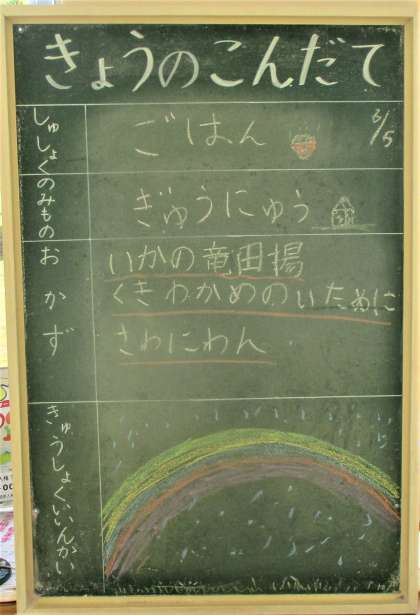 きょうのこんだて
2/5
しゅしょく
ごはん
のみもの
ぎゅうにゅう
おかず
いかの竜田揚
くきわかめのいために
さわにわん
きゅうしょくいいんかい